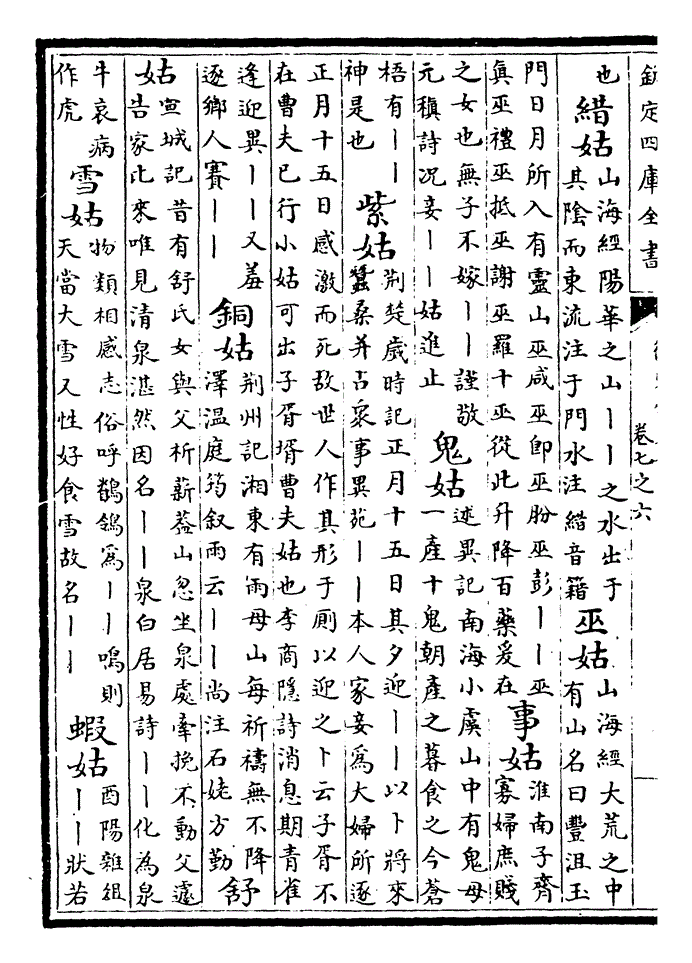 欽定四庫全書
卷七之六
也
姑
山海經陽華之山丨丨之水出于
其陰而東流注于門水注音籍
巫姑
山海經大荒之中
有山名曰豐沮玉
門日月所入有靈山巫咸巫即巫肦巫彭丨丨巫
真巫禮巫抵巫謝巫羅十巫從此升降百藥爰在
事姑
淮南子齊
寡婦庶賤
之女也無子不嫁丨丨謹敬
元稹詩况妾丨丨姑進止
鬼姑
述異記南海小虞山中有鬼母
一產十鬼朝產之暮食之今蒼
梧有丨丨
神是也
紫姑
荆楚歲時記正月十五日其夕迎丨丨以卜將來
蠶桑并占衆事異苑丨丨本人家妾爲大婦所逐
正月十五日感激而死故世人作其形于厠以迎之卜云子胥不
在曹夫已行小姑可出子胥壻曹夫姑也李商隱詩消息期青雀
逢迎異丨丨又羞
逐鄉人賽丨丨
銅姑
荆州記湘東有雨母山每祈禱無不降
澤温庭筠叙雨云丨丨尚注石姥方勤
舒
姑
宣城記昔有舒氏女與父析薪葢山忽坐泉處牽挽不動父遽
告家比來唯見清泉湛然因名丨丨泉白居易詩丨丨化為泉
牛哀病
作虎
雪姑
物類相感志俗呼鶺鴒爲丨丨鳴則
天當大雪又性好食雪故名丨丨
蝦姑
酉陽雜俎
丨丨狀若